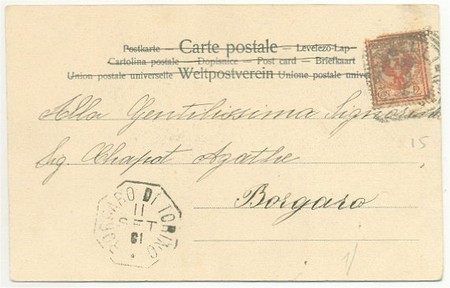 Postkarte — Carte postale — Levelező-Lap
Cartolina postale — Dopisnice — Post card — Briefkaart
Union postale universelle Weltpostverein Unione postale
Alla Gentilissima Signorina
Sig Chapot Agathe
Borgaro
15
BORGARO DI TORINO
11
01
1/